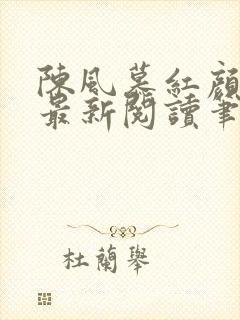 陳風慕紅顏
最新閱讀筆
杜蘭舉